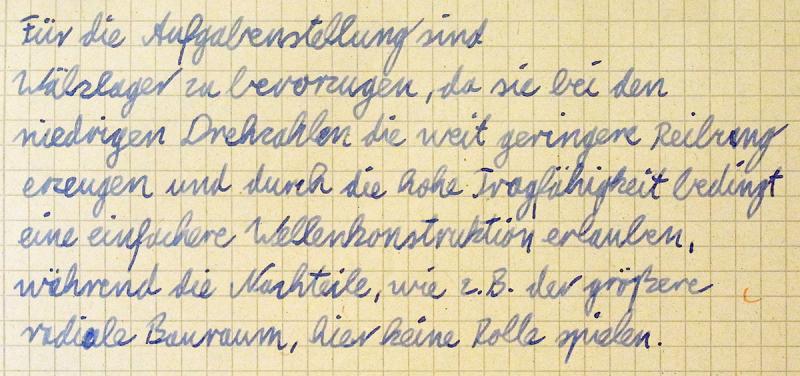 Für die Aufgabenstellung sind
Wälzlager zu bevorzugen, da sie bei den
niedrigen Drehzahlen die weit geringere Reibung
erzeugen und durch die hohe Tragfähigkeit bedingt
eine einfachere Wellenkonstruktion erlauben,
während die Nachteile, wie z.B. der größere
radiale Bauraum, hier keine Rolle spielen.